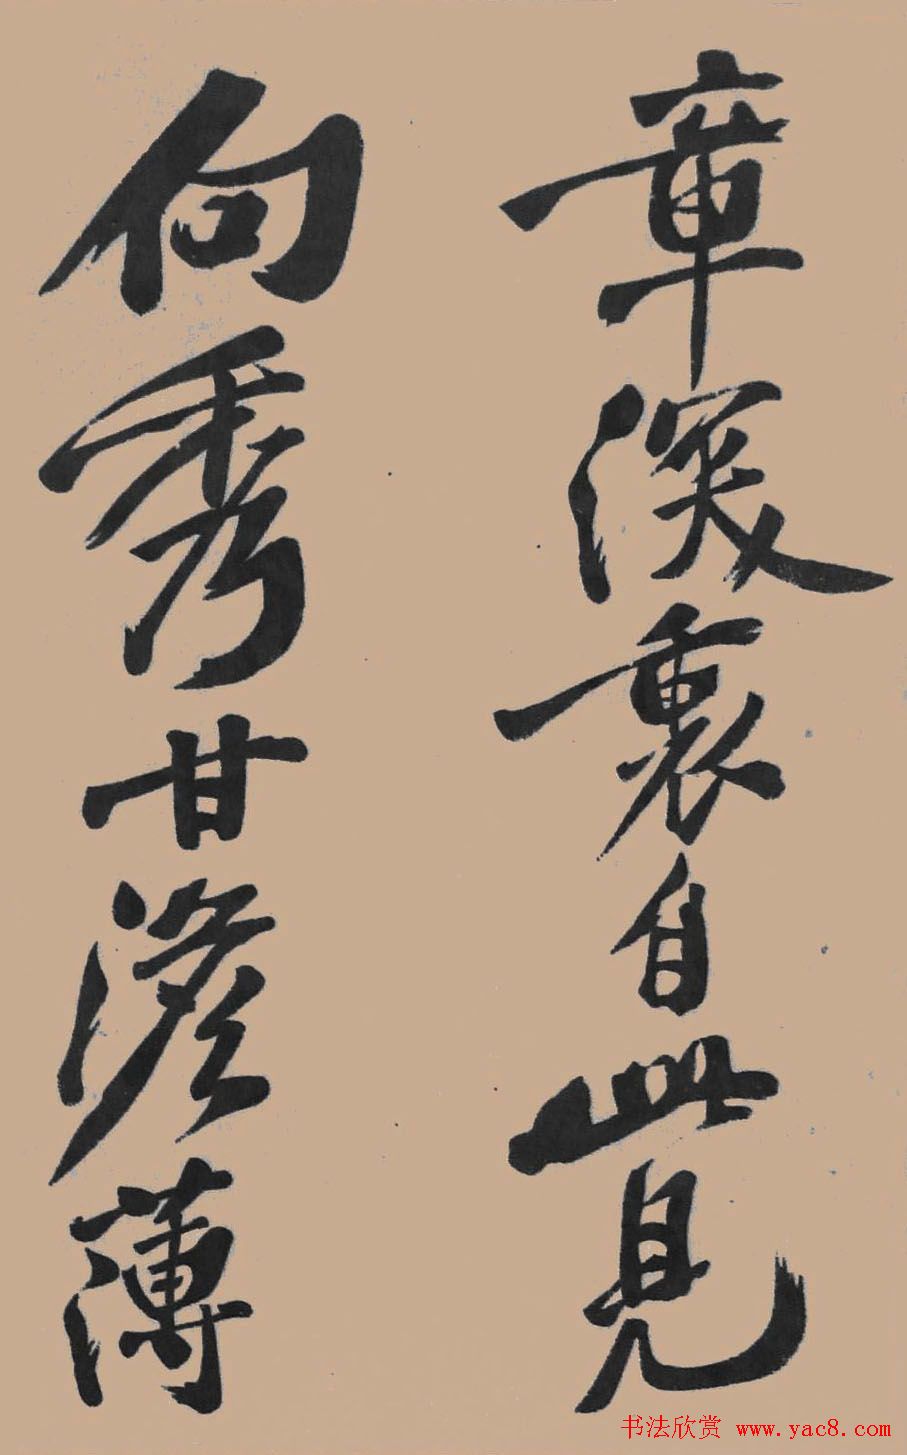 章深衷自此見
向秀甘澹薄
书法欣赏 www.yac8.com